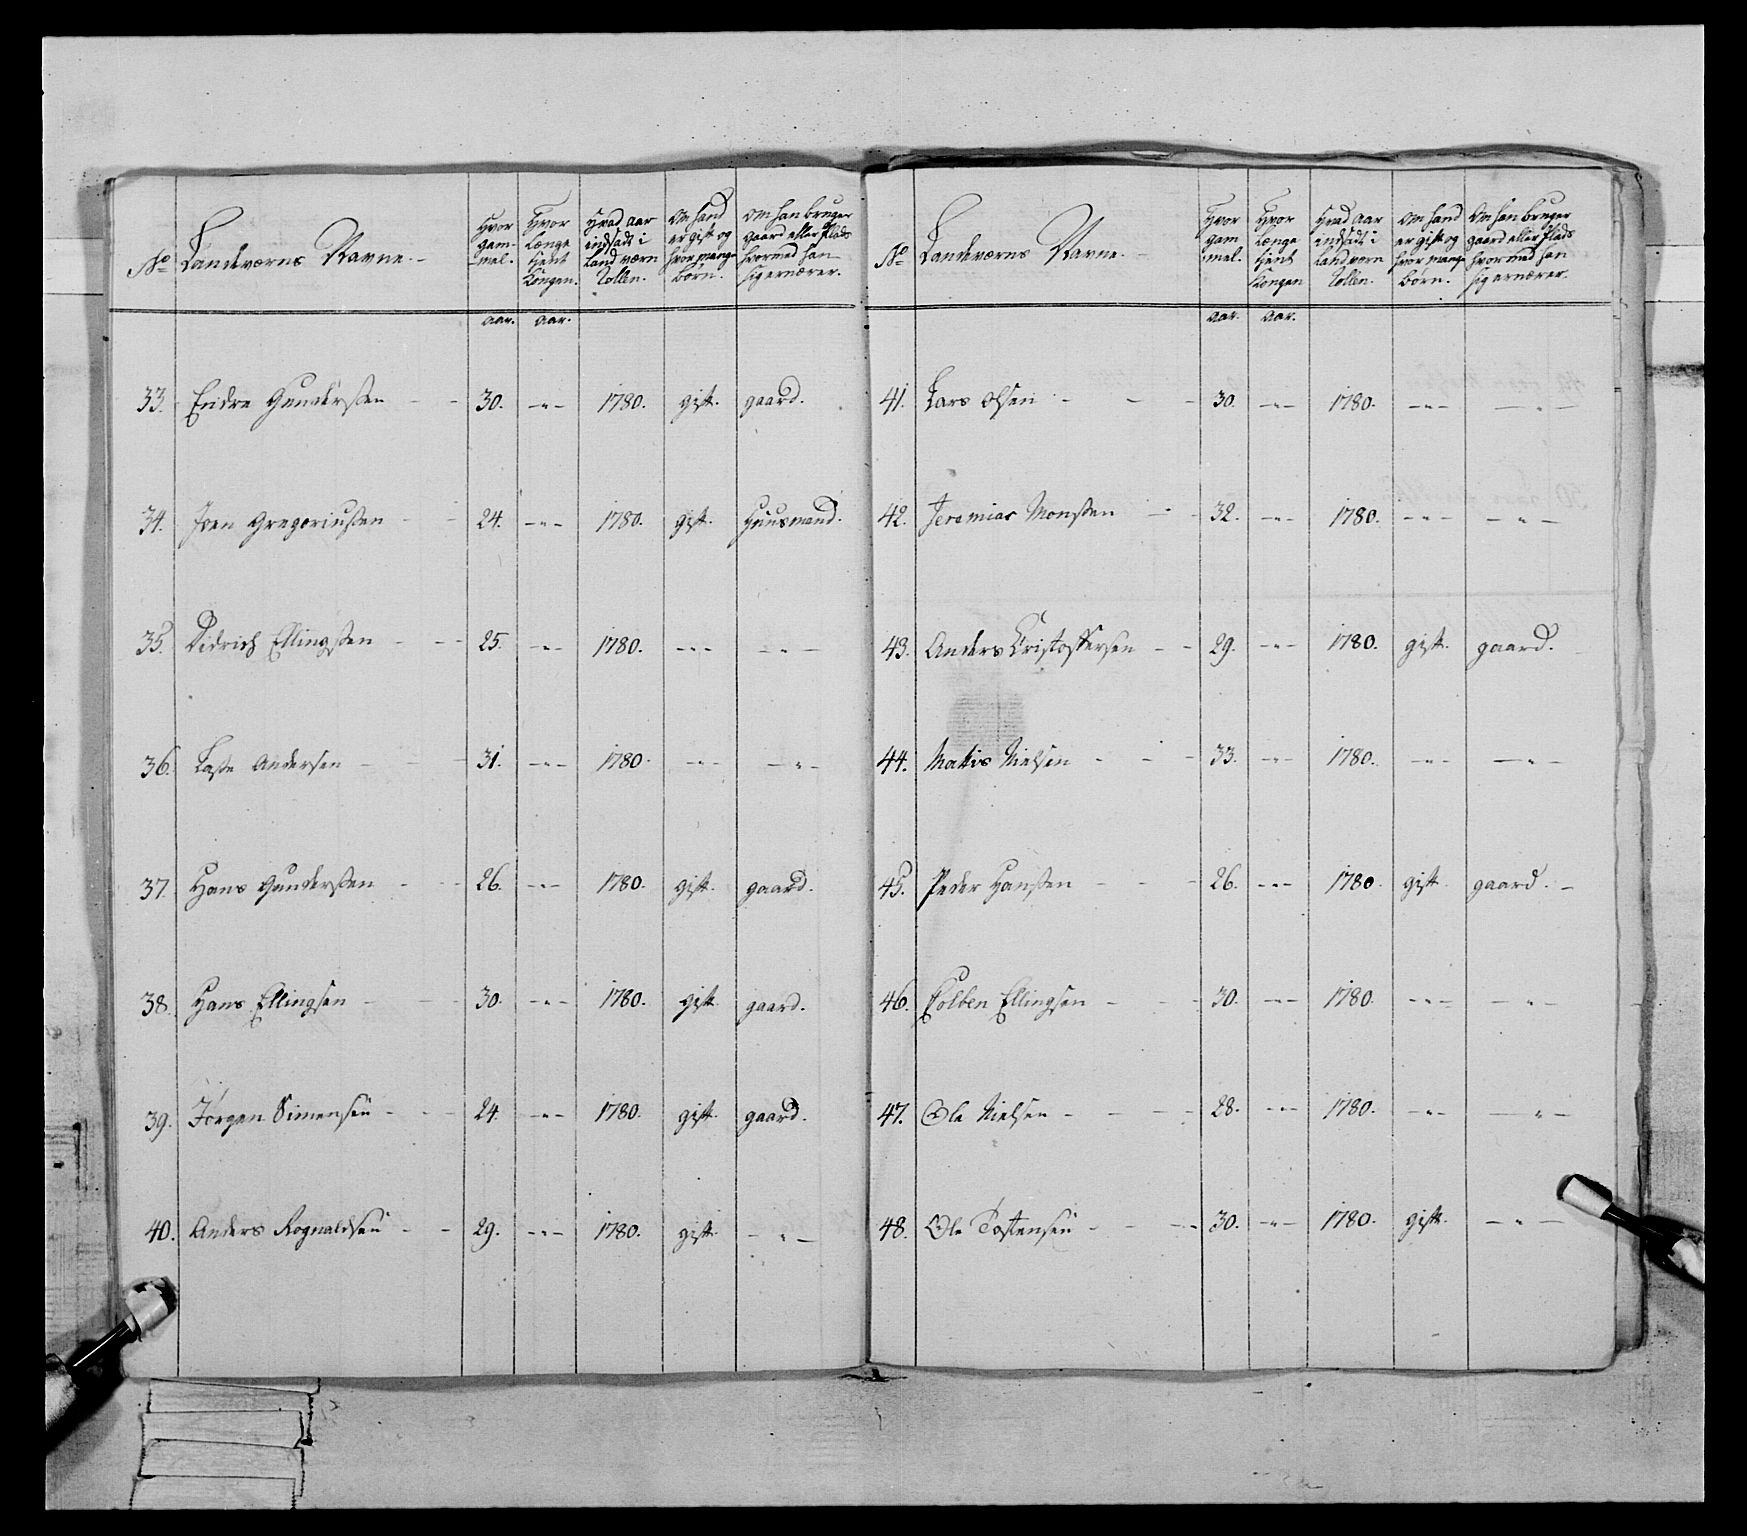 No Landværns Navne. - Hvor gam- mel. Hvor længe tient Kongen. Hvad aar indsadt i Land værn Rollen. Om hand er gift og hvor mange børn. Om han bruger gaard eller Plads hvormed han sig ernærer.
aar. aar.
33. Endre Gundersen - - 30. -"- 1780. gift. gaard.
34. Iven Gregoriussen - - 24. -"- 1780. gift. Huusmand.
35. Didrich Ellingssen - - 25. -"- 1780. -"- -"-
36. Lasse Andersen - - 31. -"- 1780. -"- -"-
37. Hans Gunderssen - - 26. -"- 1780. gift. gaard.
38. Hans Ellingsen - - 30. -"- 1780. gift gaard.
39. Jørgen Simensen - - 24 -"- 1780. gift. gaard.
40. Anders Rognaldsen - - 29. -"- 1780. gift. -"-
No Landværns Navne. - Hvor gam mel. Hvor længe tient Kongen Hvad aar indsadt i Landværn Rollen. Om hand er gift og hvor mange børn. Om han bruger gaard eller Plads hvormed han sig ernærer.
aar. aar.
41. Lars Olsen - - - 30. -"- 1780. -"- -"-
42. Jeremias Monssen - - 32. -"- 1780. -"- -"-
43. Anders Cristoffersen - - 29. -"- 1780. gift. gaard.
44. Mattis Nielsen - - - 33. -"- 1780. -"- -"-
45. Peder Hanssen - - - 26. -"- 1780. gift. gaard. -
46. Colben Ellingsen - - - 30. -"- 1780. -"- -"-
47. Ole Nielsen - - - 28. -"- 1780. -"- -"-
48. Ole Tostensen - - - 30. -"- 1780. gift. -"-